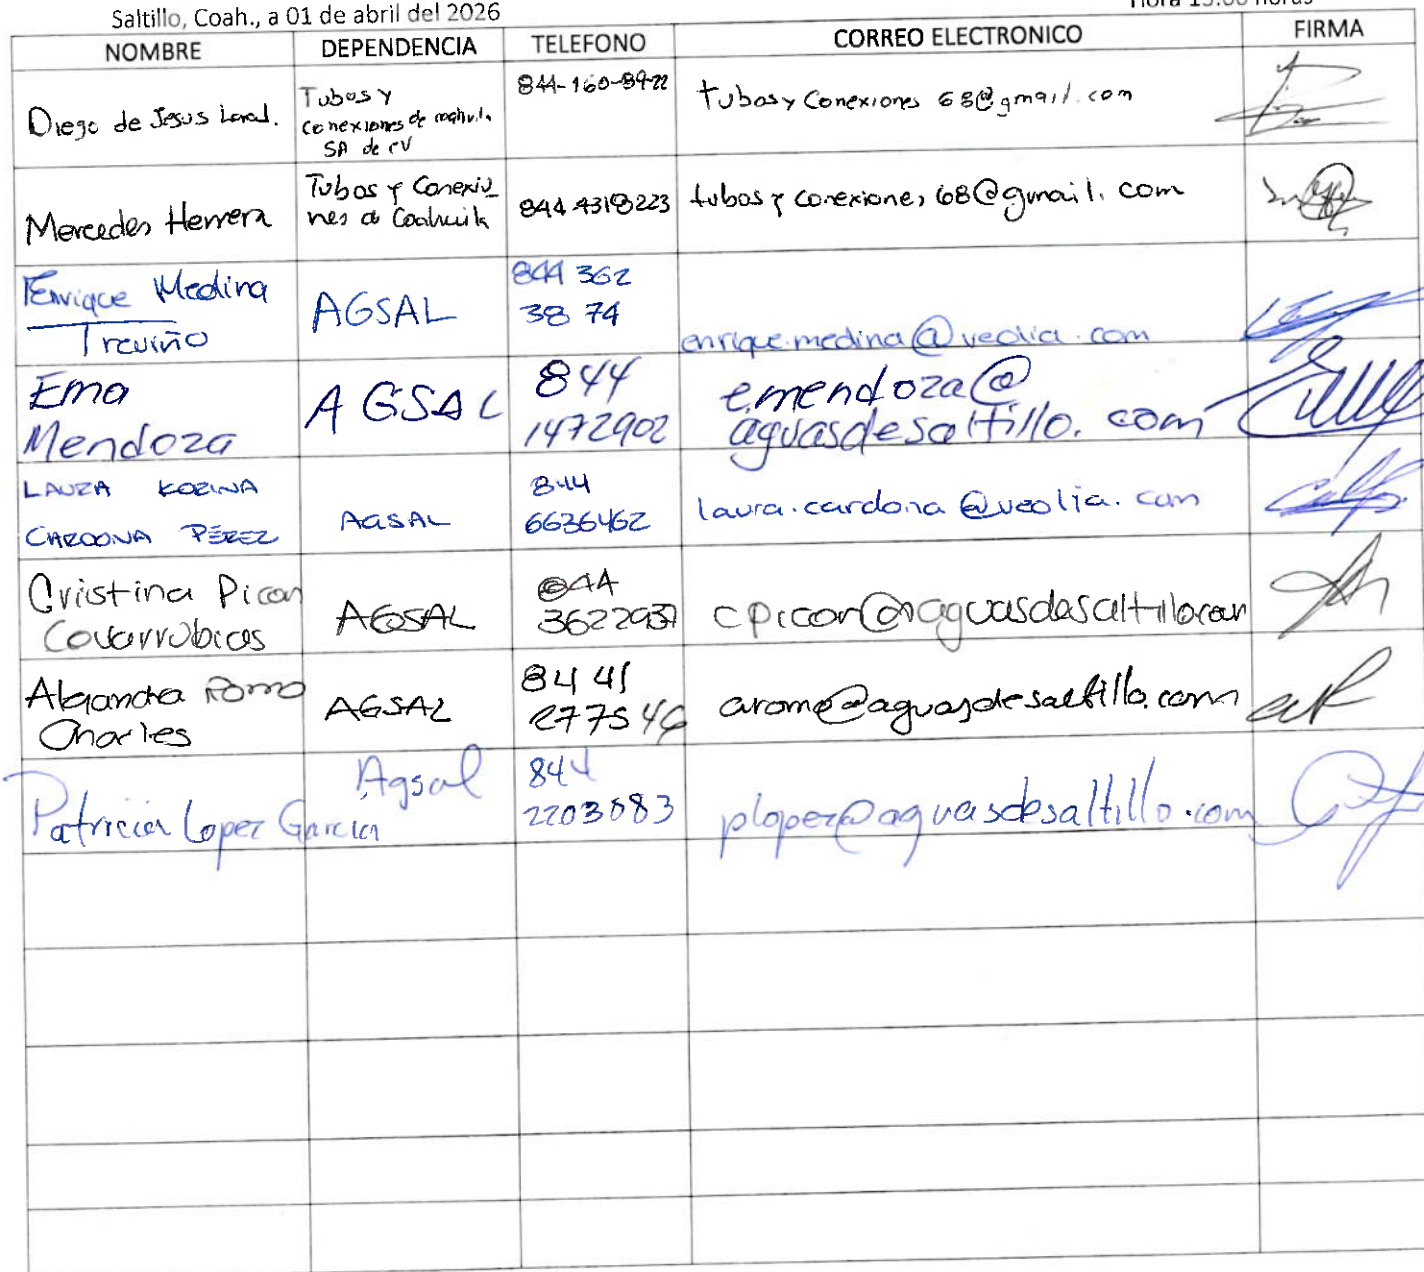 Saltillo, Coah., a 01 de abril del 2026
NOMBRE DEPENDENCIA TELEFONO CORREO ELECTRONICO FIRMA
Diego de Jesus
Tubos y
conexiones de
SA de CV
844-160-8922
tubosyConexiones 68@gmail.com
Mercedes Herrera
Tubos y Conexio
nes d Coahuila
844 4318223
tubos y conexiones 68@gmail.com
Enrique Medina
Treviño
AGSAL
844 362
38 74
enrique.medina@veolia.com
Ema
Mendoza
AGSAL
844
1472902
e.mendoza@
aguasdesaltillo.com
LAURA KORINA
CARDONA PÉREZ
AGSAL
844
6636462
laura.cardona@veolia.com
Cristina Picon
Covarrubias
AGSAL
844
Alejandra Romo
Charles
AGSAL
84 41
277546
Patricia Lopez Garcia
Agsal
844
2203883
plopez@aguasdesaltillo.com